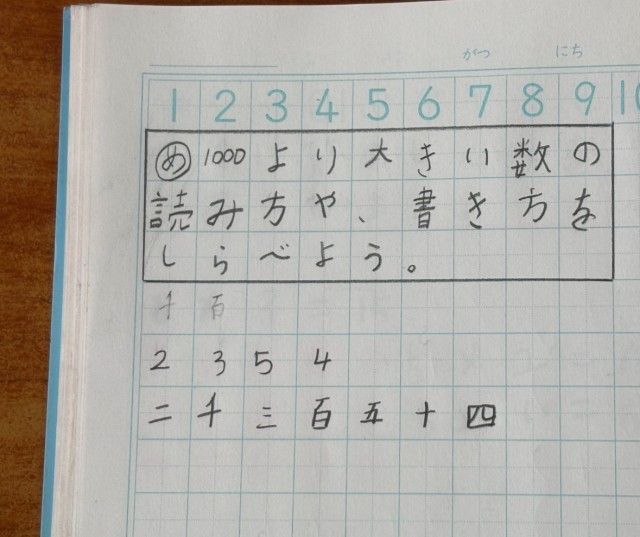 がつ にち
1 2 3 4 5 6 7 8 9 10
め 1000より大きい数の
読み方や、書き方を
しらべよう。
千 百
2 3 5 4
二千三百五十四